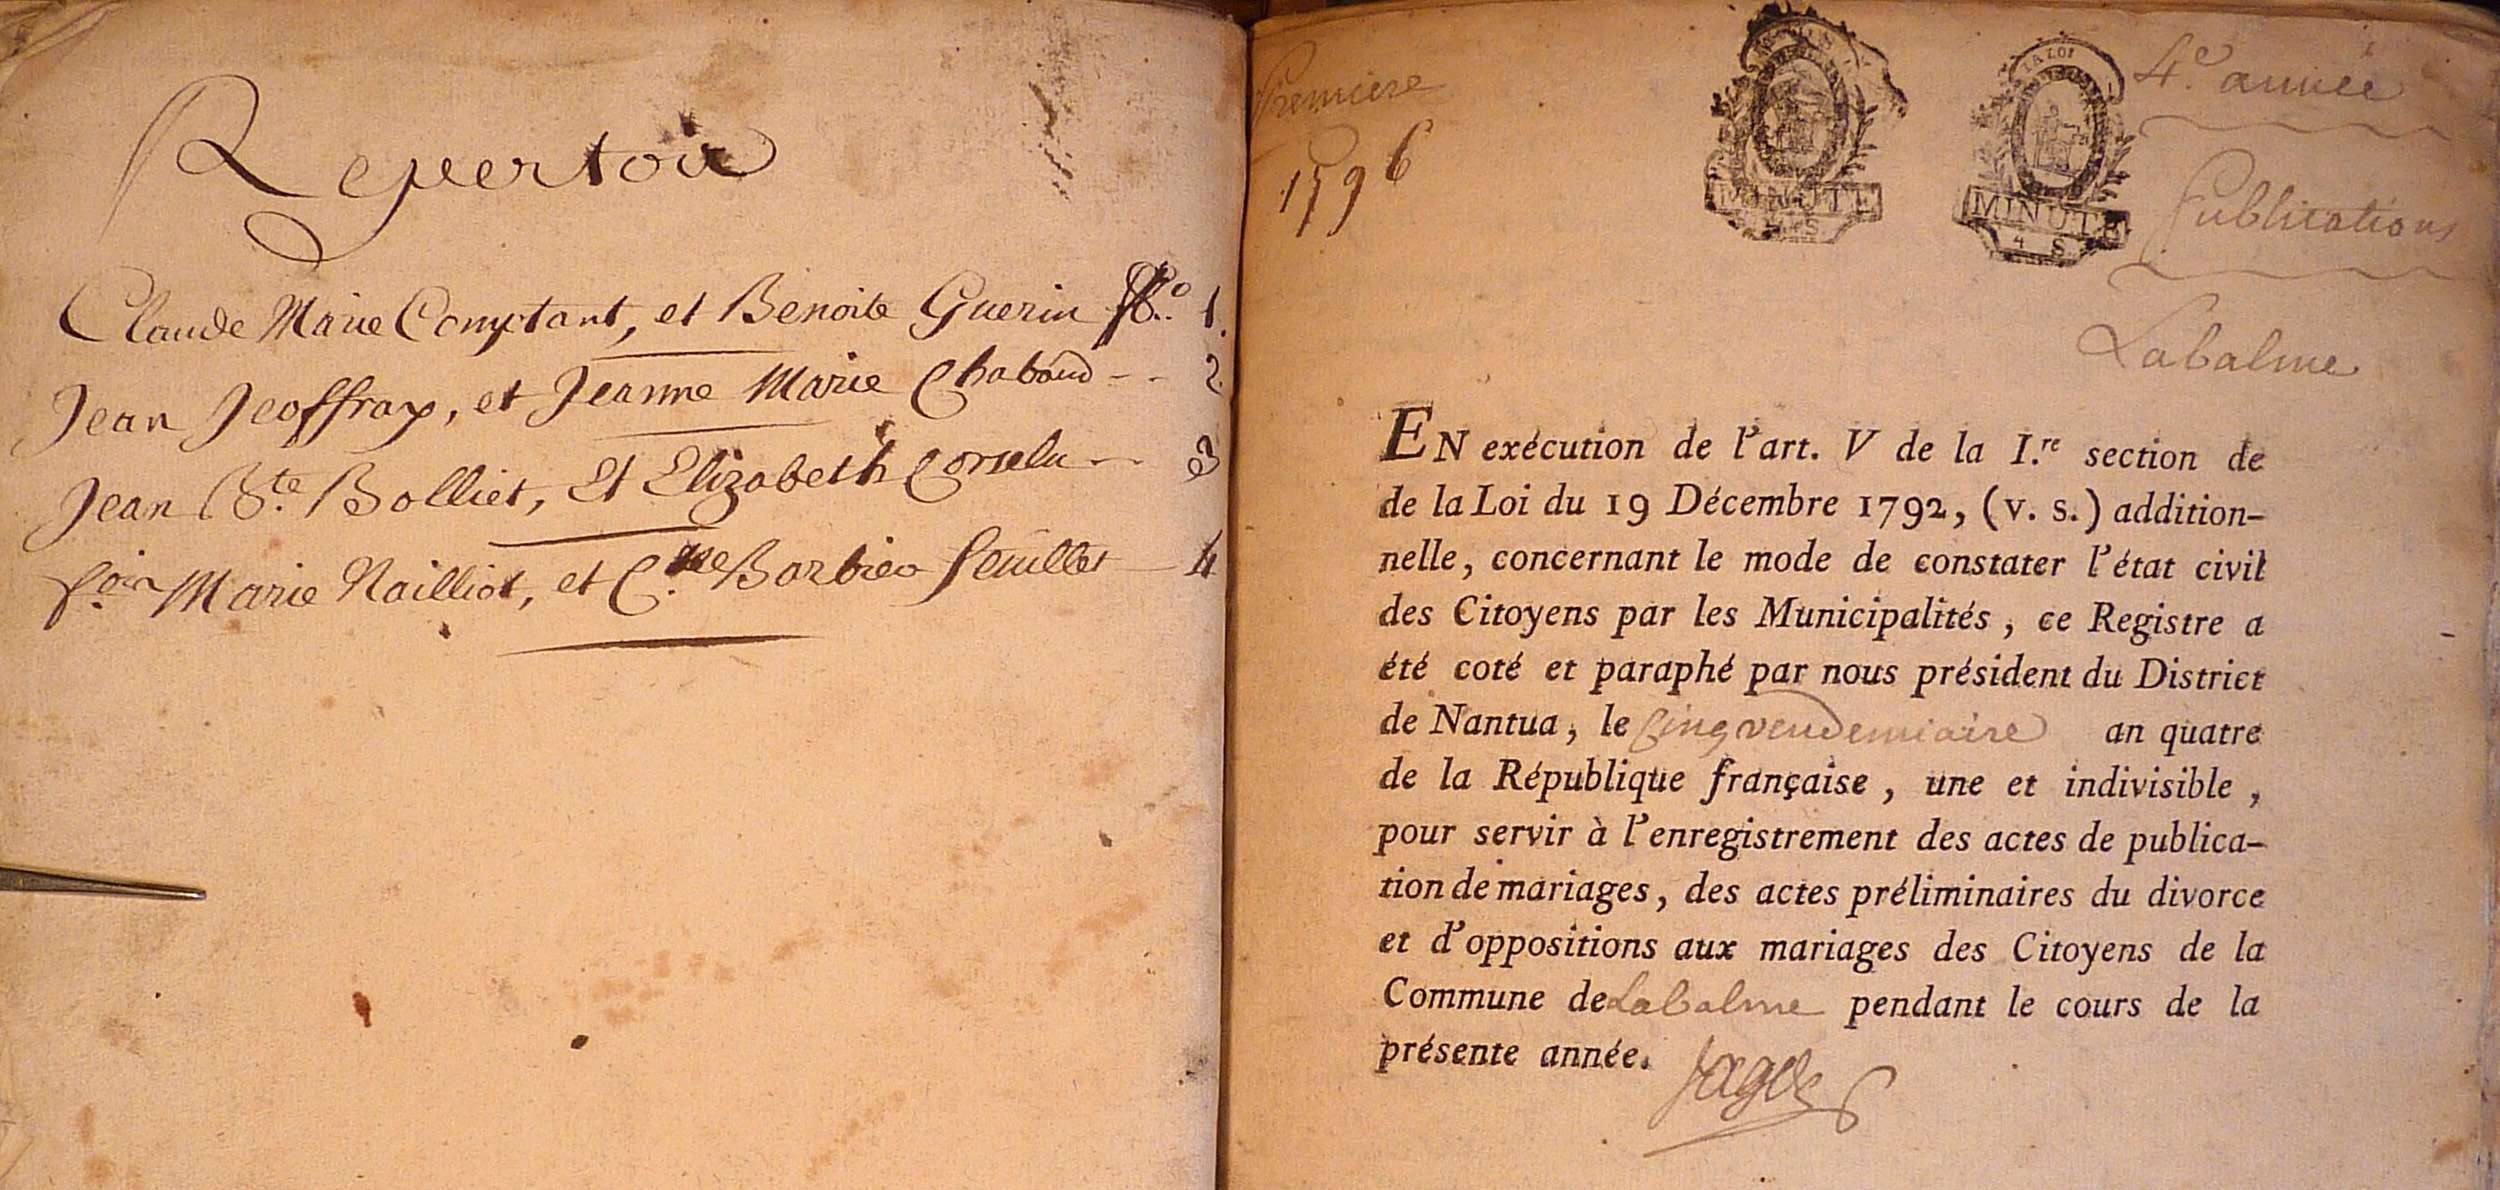 Repertoire
Claude Marie Comptant, et Benoite Guerin fo. 1.
Jean Jeoffray, et Jeanne Marie Chaband -- 2
Jean Bte. Bolliet, Et Elizabeth -- 3
Marie Nailliot, et Barbier feuillet 4
Premiere
1796
LA LOI
MINUTE
4 S
MINUTE
4 S
4e. année
Publications
Labalme
EN exécution de l'art. V de la I.re section de
de la Loi du 19 Décembre 1792, (v. s.) addition-
nelle, concernant le mode de constater l'état civil
des Citoyens par les Municipalités, ce Registre a
été coté et paraphé par nous président du District
de Nantua, le Cinq vendemiaire an quatre
de la République française, une et indivisible,
pour servir à l'enregistrement des actes de publica-
tion de mariages, des actes préliminaires du divorce
et d'oppositions aux mariages des Citoyens de la
Commune de Labalme pendant le cours de la
présente année.